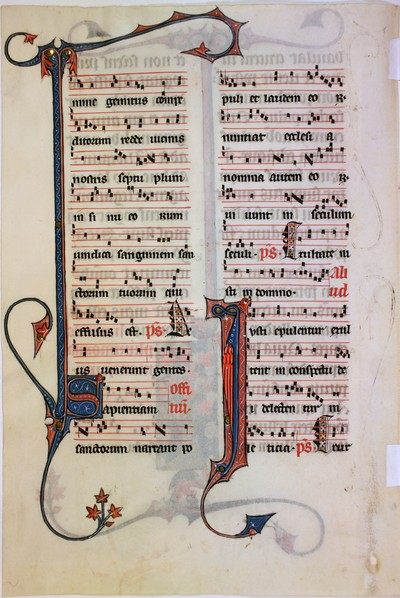 mine gemitus compe
ditorum redde vicinis
nostris septu plum
in si nu eo rum
vindica sanguinem san
ctorum tuorum qui
effusus est. ps. D
us venerunt gentes.
offi
Sapientiam
sanctorum narrant po
puli et laudem eo R.
nuntiat ecclesia a
nomina autem eo R.
vi vunt in seculum
seculi. ps. Exultate iu
ali
sti in domno. ud
Iusti epulentur exul
tent in conspectu de
i delecten tur in
le ticia. ps. Exur